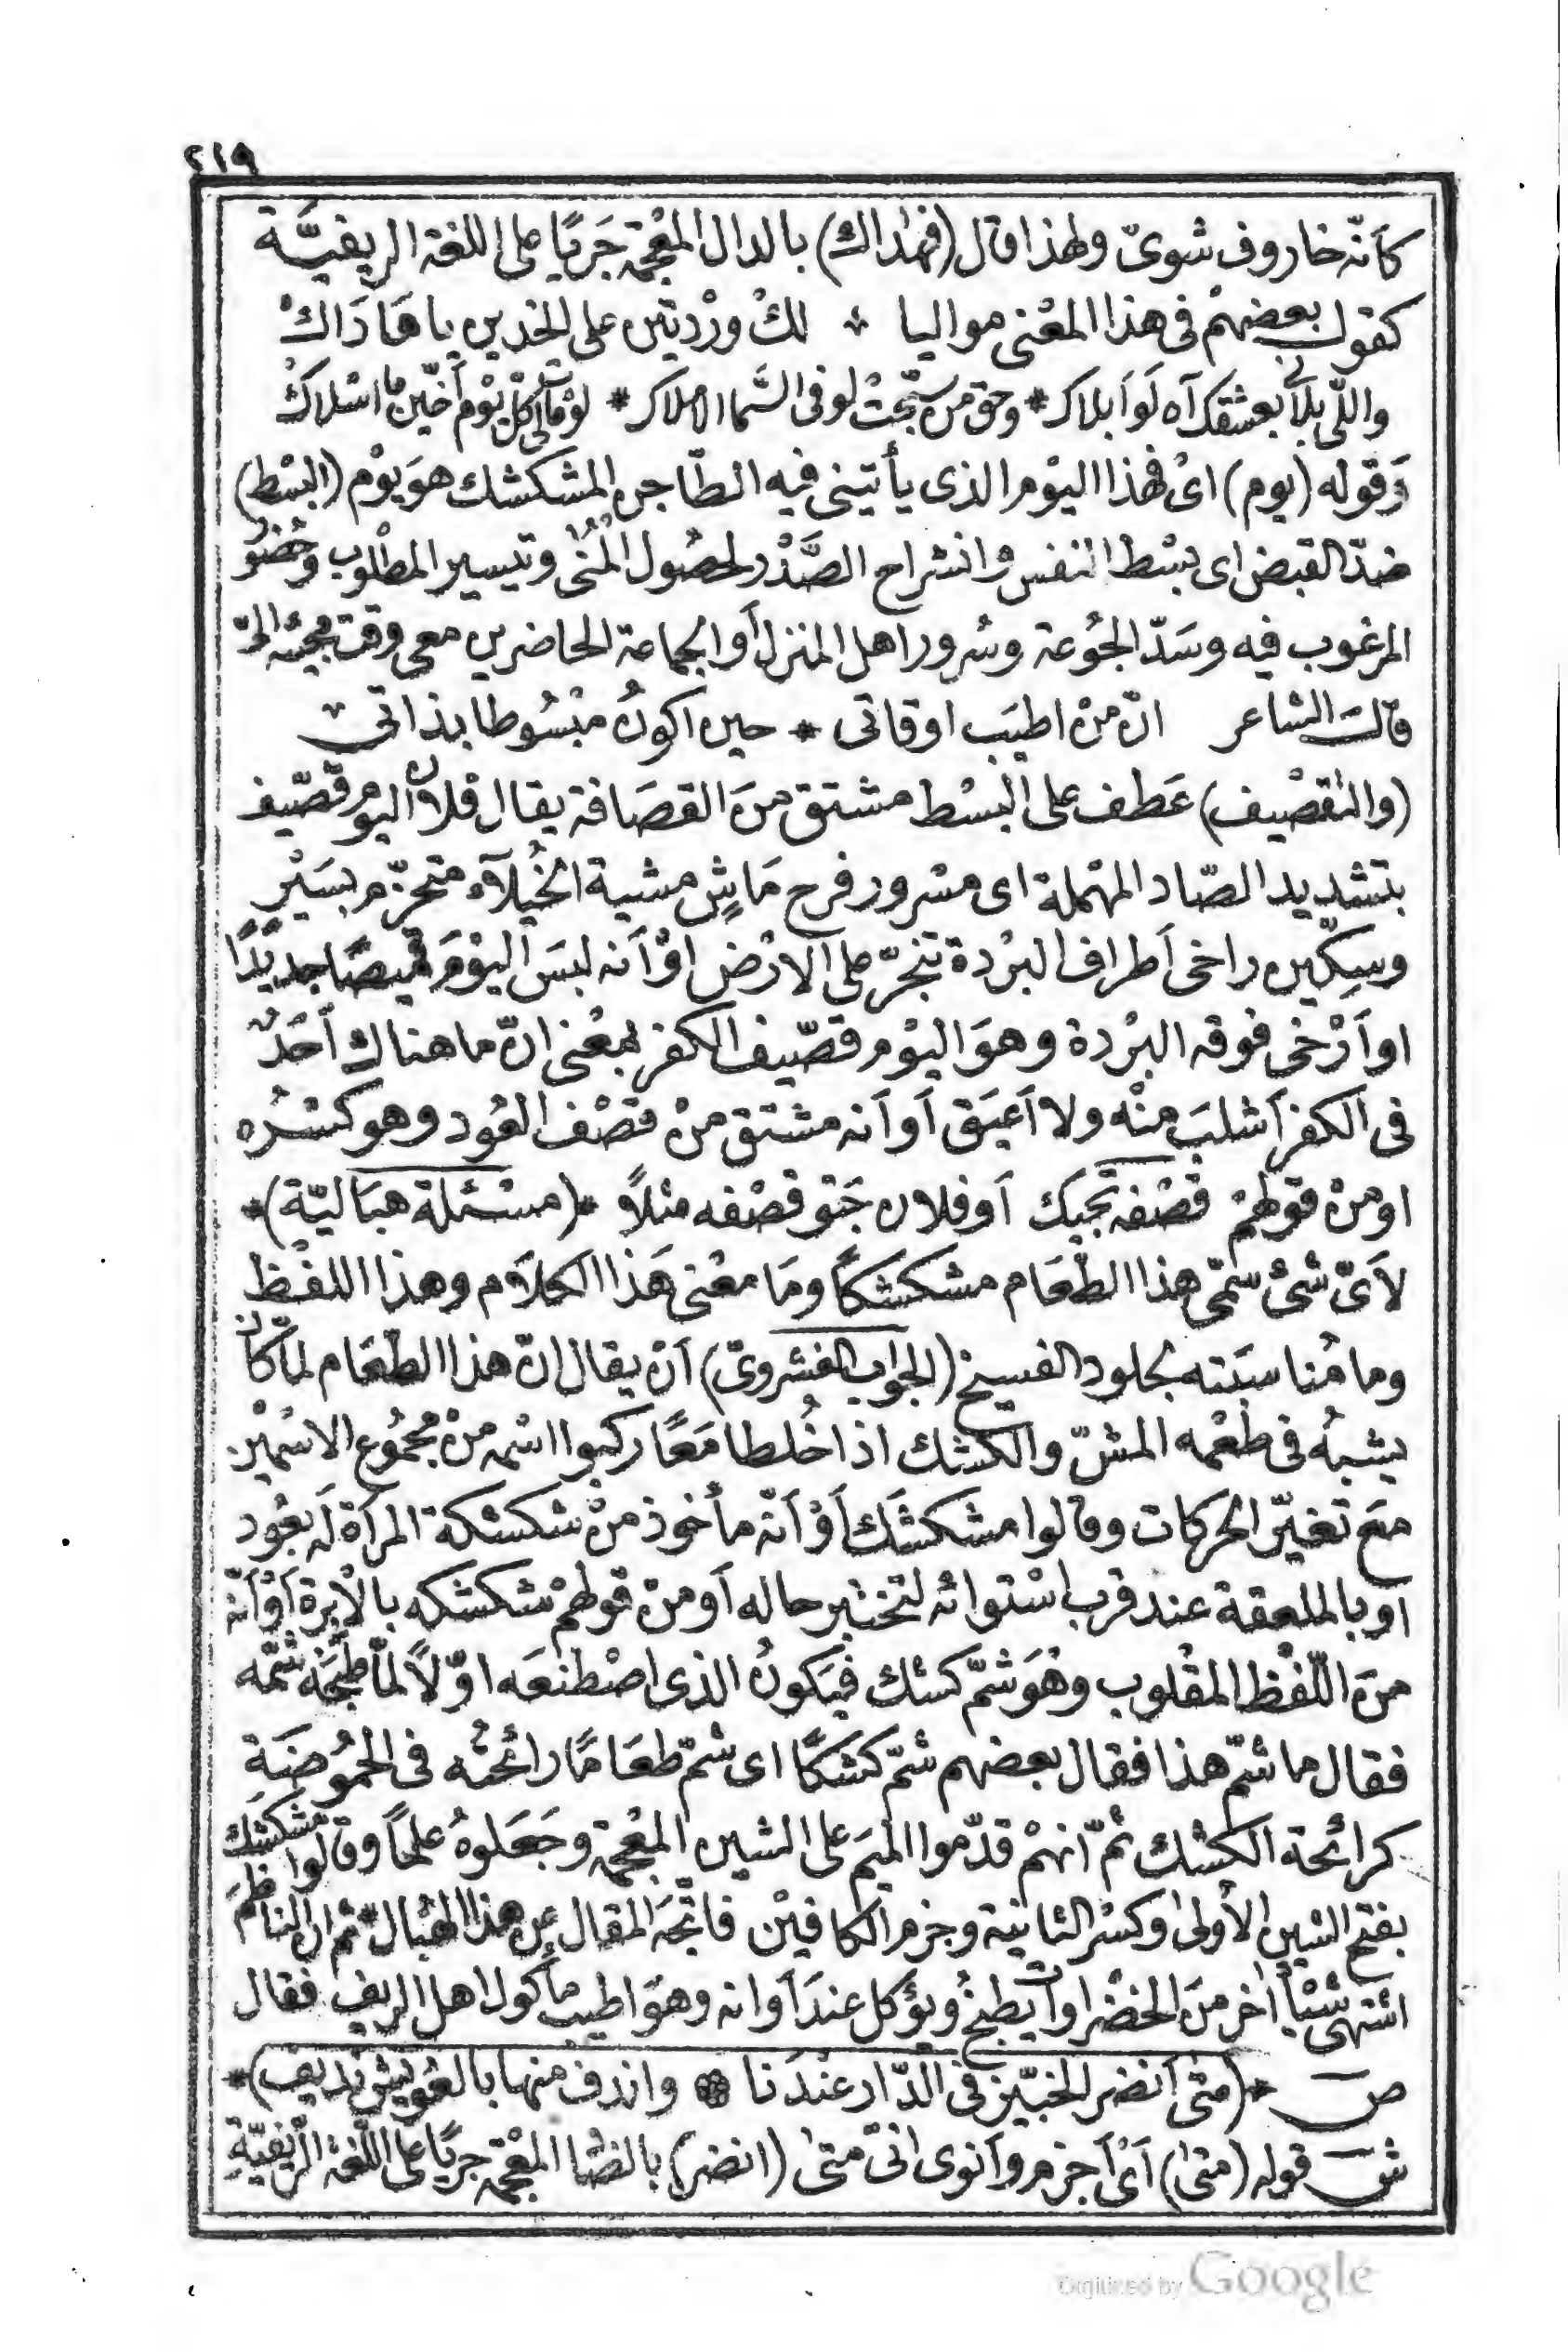 ٢١٩
كأنّه خاروف شوىّ ولهذا قال (فهذاك) بالدال المعْجمة جَريًا على اللغة الريفيَّة
كقول بعضهمْ فى هذا المعْنى مواليا * لكْ ورْديتين على الخدين يا هَا ذَاكْ
واللّى بلانى بعشقك آه لَو أبلاك * وحق من سبّحتْ لو فى السَّما الاملاك * لوْ كلّ يوْم أخيّن ما اسْلاكْ
وَقوله (يوم) اىْ فهذا اليوْم الذى يأتينى فيه الطّاجن المشكشك هوَ يوْم (البسْط)
ضدّ القبض اى بسْط النفس وانشراح الصَّدْر لحصُول المُنى وتيسير المطْلوب وحُضور
المرغوب فيه وسَدّ الجُوعة وسُرور اهل المنزل أو الجماعة الحاضرين معى وقت مجيئه الىّ
قال الشاعر انّ منْ اطيَب اوقاتى * حين اكونُ مبْسُوطا بذاتى
(والتقصْيف) عَطف على البسْط مشتق منَ القصَافة يقال فلان اليوم قصّيف
بتشديد الصّاد المهْملة اى مسْرور فرح مَاشٍ مشية الخُيلآء متحزّم بسَيْر
وسِكّين راخى أطراف البرْدة تنجرّ على الارْض اوْ أنه لبسَ اليوْمَ قميصًا جديدًا
او أرْخى فوقه البرْدة وهوَ اليوْم قصّيف الكفر بمعْنى انّ ما هناك أحَدٌ
فى الكفر أشلبَ منْه ولا أعيَق أو أنه مشتق منْ قصْف العُود وهو كسْرُه
او منْ قولهمْ قصْفه تجيك أو فلان جَتو قصْفه مثلاً *(مسْئلة هبَاليّة)*
لأىّ شئ سمّى هذا الطّعَام مشكشكاً ومَا معْنى هَذا الكلاَم وهذا اللفْظ
وما مُناسبَته بجلود الفسيخ (الجواب الفشروىّ) أنْ يقال انّ هذا الطّعَام لمّا كان
يشبهُ فى طعْمه المشّ والكشك اذا خُلطا مَعًا ركبوا اسْمه منْ مجْمُوع الاسْمين
معَ تغيّر الحركات وقالوا مشكشَك أوْ أنّه مأخوذ منْ شكشكة المرأة لَه بعُود
أو بالملعقة عند قرب اسْتوائه لتختبر حاله أو منْ قولهمْ شكشكه بالابْرة أوْ أنّه
منَ اللّفْظ المقْلوب وهُوَ شمّ كشك فيَكونُ الذى اصْطنعَه اوّلاً لمّا طبخَه شمّه
فقال ما شمّ هذا فقال بعضهم شمّ كشكًا اى شمّ طعَامًا رائحتُه فى الحمُوضَةِ
كرائحة الكشْك ثمّ أنهمْ قدّموا الميَم على الشين المعْجمة وجَعَلوهُ علماً وقالوا مشكشِك
بفتح الشين الأولى وكسْر الثانية وجزم الكافيْن فاتّجَه المقال عن هذا الهبَال ثم ان الناظم
اشتهى شيْأ آخر منَ الخضْراوات يطبخُ ويؤكل عندَ أوانه وهوَ اطيب مأكول اهل الريف فقال
ص *(متى أنضر الخبّيز فى الدّار عنْدَنا * واندف منها بالعُويش نديف)*
ش قوله (متى) أىْ أجزم وأنوى انّى متى (انضر) بالضّا المعْجمة جريًا على اللّغة الرّيفيّةِ
Digitized by Google